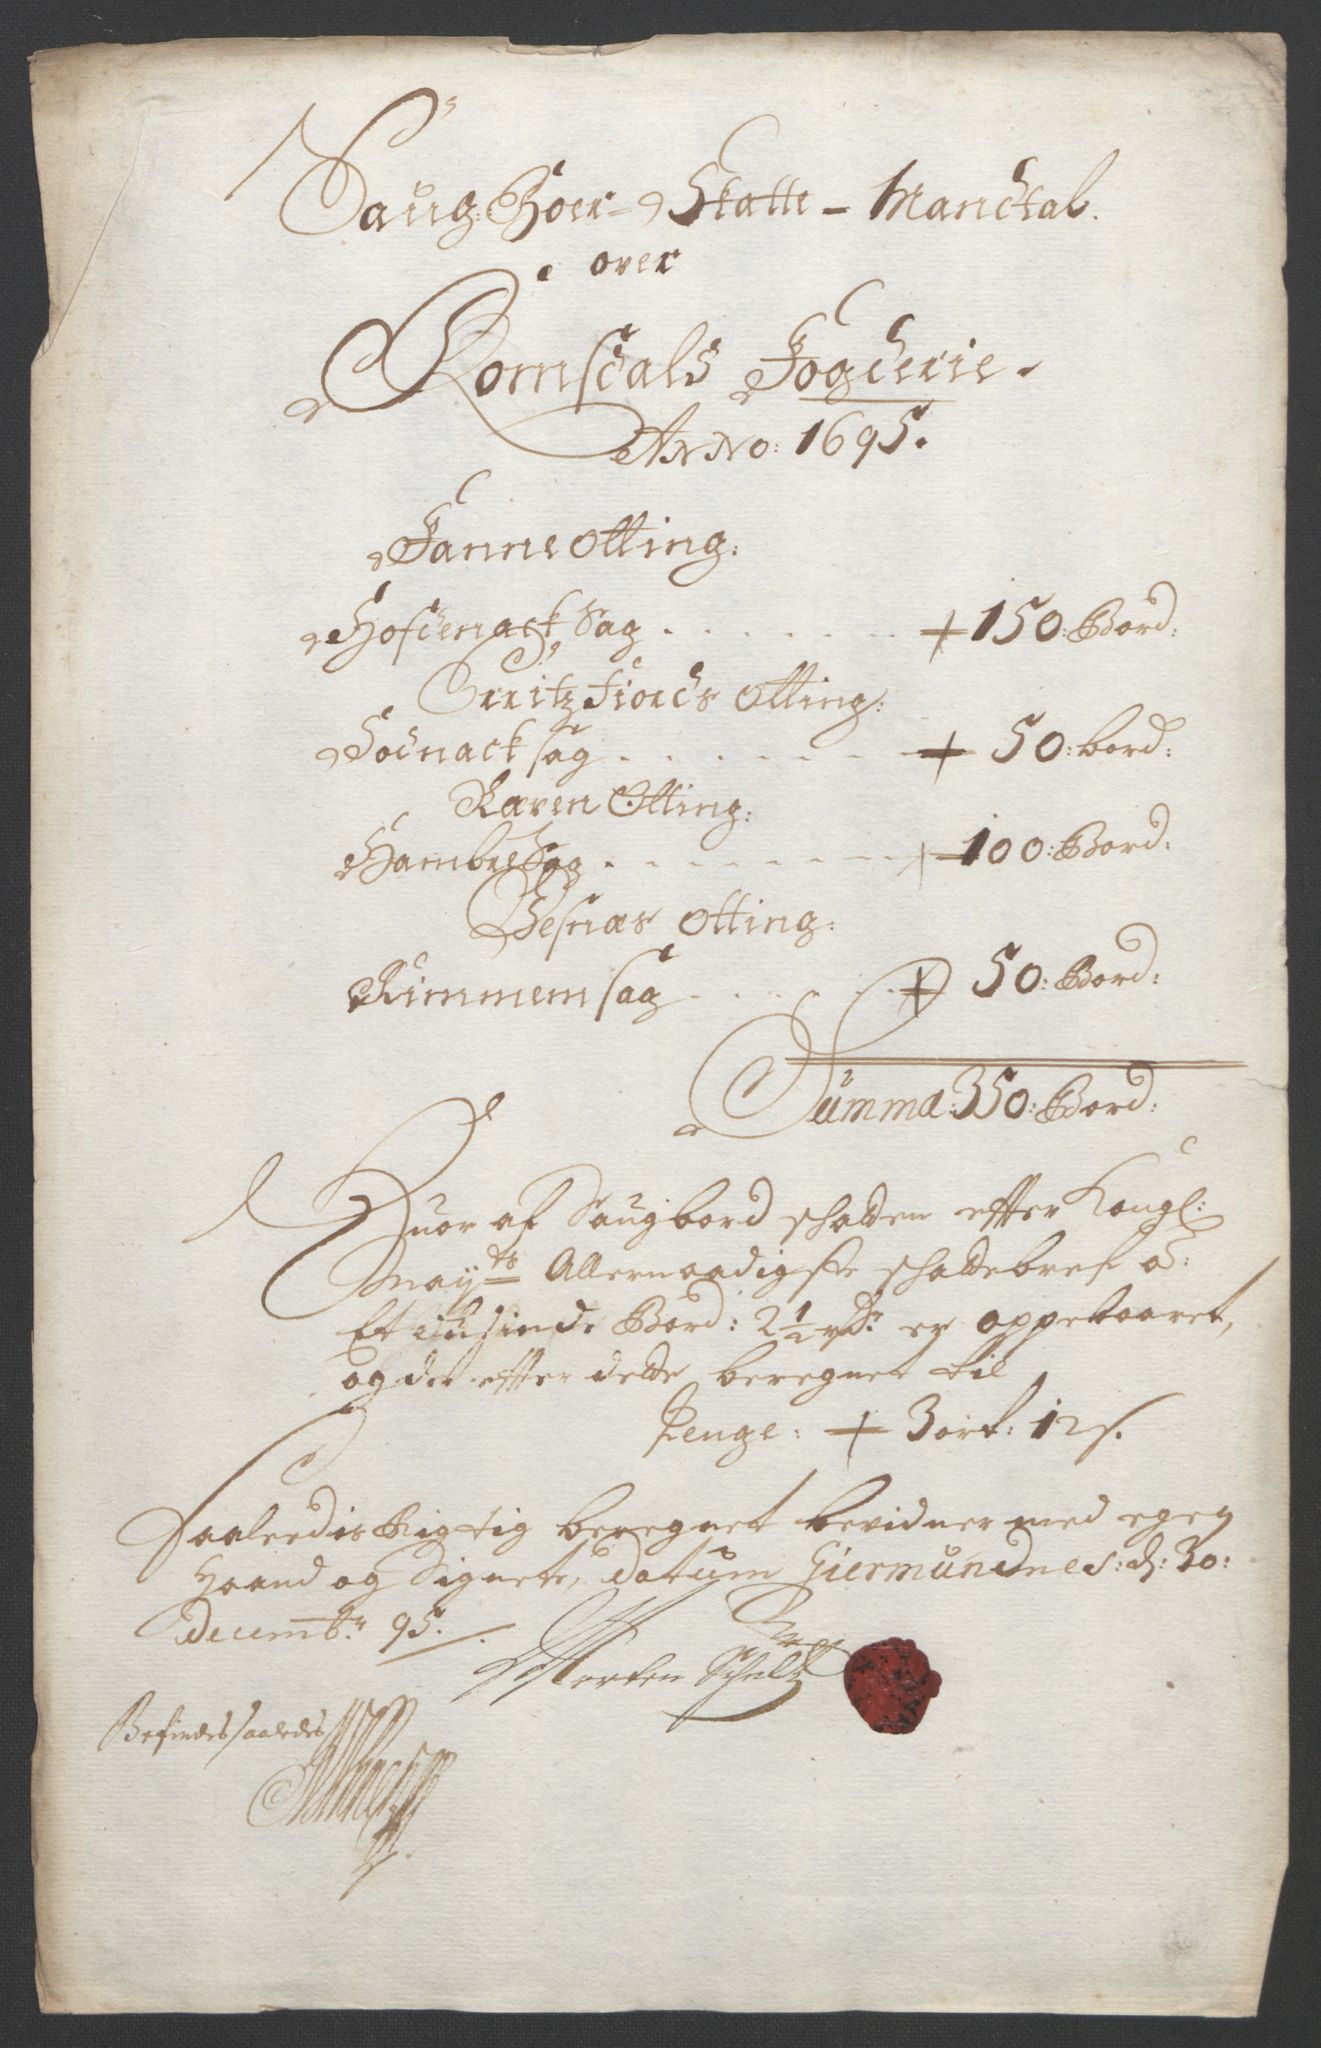 Saug: Boer-Skatte-Manctal.
over
Romsdals Fogderie.
Anno: 1695.
Fanne Otting:
Hofdenack Sag . . . . . 150: Bord:
Erritzfiords Otting:
Sodnack sag . . . . . 50: bord:
Raven Otting:
Hambre Sag . . . . . 100: Bord:
Vesnæs Otting:
Rimmem sag . . . . . 50: Bord:
Summa: 350: Bord:
Huor af Saugbord schatten effter Kongl:
Maytz Allernaadigste schattebref a:
Et tusinde Bord: 2½ rdr er oppebaaret,
og det effter dette beregnet til
Penge: 3 ort: 12 s.
Saaleedis Rigtig beregnet bevidner med egen
Haand og Signete, datum Giermundnes: d: 30:
decembr: 95.
Morten Schultz
Befindes saaledes